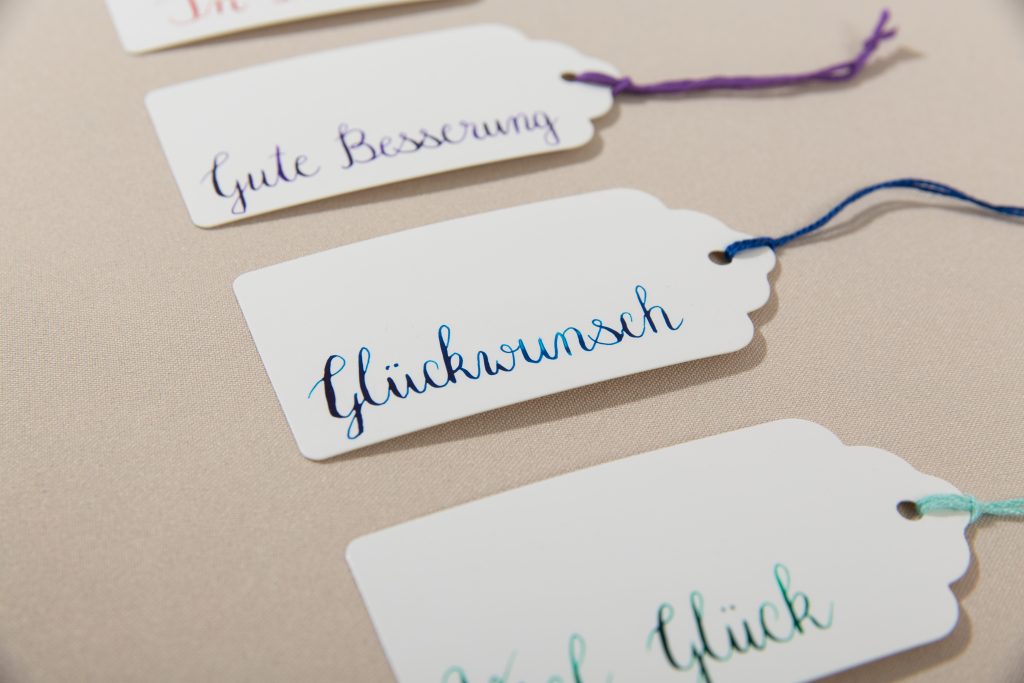 Gute Besserung
Glückwunsch
Glück